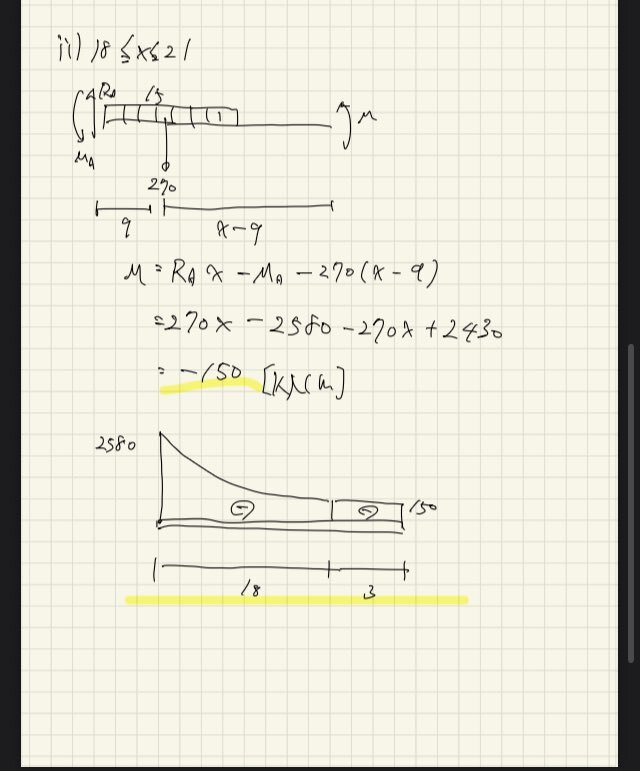 ii) 18 ≤ x ≤ 21
RA 15
M
MA
270
9 x-9
M = RA x - MA - 270 (x - 9)
= 270x - 2580 - 270x + 2430
= -150 [kN·m]
2580
⊖ ⊖ 150
18 3